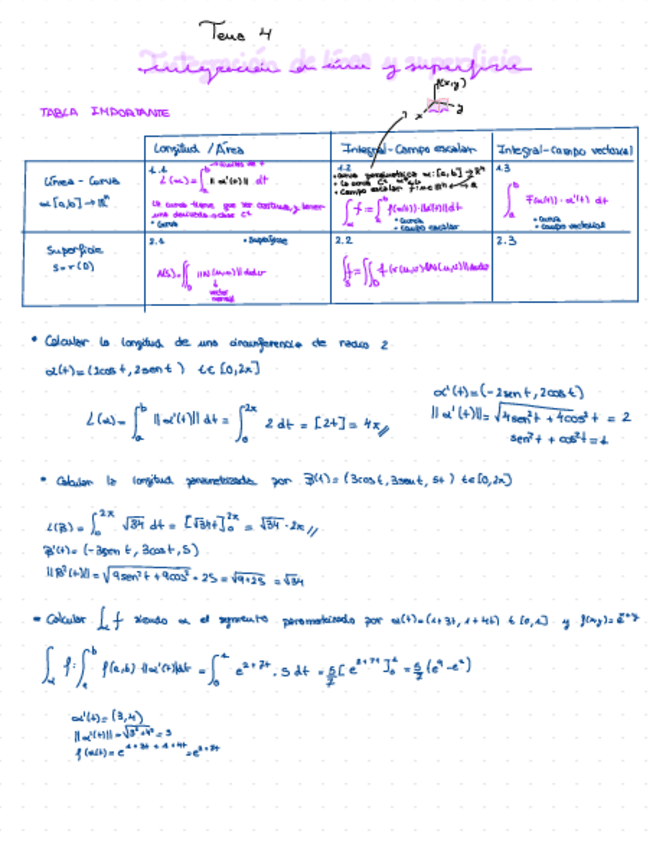 Tema 4
Integración de línea y superficie
f(x,y)
x
y
TABLA IMPORTANTE
Longitud / Área
Integral-Campo escalar
Integral-Campo vectorial
Línea - Curva
α[a,b] → ℝⁿ
1.1
L(α) = ∫ₐᵇ ||α'(t)|| dt
La curva tiene que ser continua, y tener
una derivada clase C¹
• Curva
1.2
• Curva parametrizada α: [a,b] → ℝⁿ
• Campo escalar
∫ f = ∫ₐᵇ f(α(t))·||α'(t)|| dt
• Curva
• Campo escalar
1.3
∫ₐᵇ F(α(t))·α'(t) dt
• Curva
• Campo vectorial
Superficie
S=r(D)
2.1
• Superficie
A(S)=∬_D ||N(u,v)|| dudv
vector
normal
2.2
∫_S f = ∬_D f(r(u,v))||N(u,v)||dudv
2.3
• Calcular la longitud de una circunferencia de radio 2
α(t)=(2cost, 2sent) t∈[0,2π]
L(α)= ∫ₐᵇ ||α'(t)|| dt = ∫₀^2π 2 dt = [2t] = 4π//
α'(t)=(-2sent, 2cost)
||α'(t)||=√(4sen²t + 4cos²t) = 2
sen²t + cos²t=1
• Calcular la longitud parametrizada por β(t)=(3cost, 3sent, 5t) t∈[0,2π]
L(β)= ∫₀^2π √34 dt = [√34t]₀^2π = √34·2π//
β'(t)= (-3sent, 3cost, 5)
||β'(t)||=√(9sen²t + 9cos² + 25) = √(9+25) = √34
• Calcular ∫_α f siendo α el segmento parametrizado por α(t)=(1+3t, 1+4t) t∈[0,1] y f(x,y)= e^(x+y)
∫_α f = ∫ₐᵇ f(a,b)·||α'(t)||dt = ∫₀¹ e^(2+7t)·5 dt = 5/7[e^(2+7t)]₀¹ = 5/7(e⁹-e²)
α'(t)=(3,4)
||α'(t)||=√(3²+4²) = 5
f(α(t))= e^(1+3t+1+4t) = e^(2+7t)